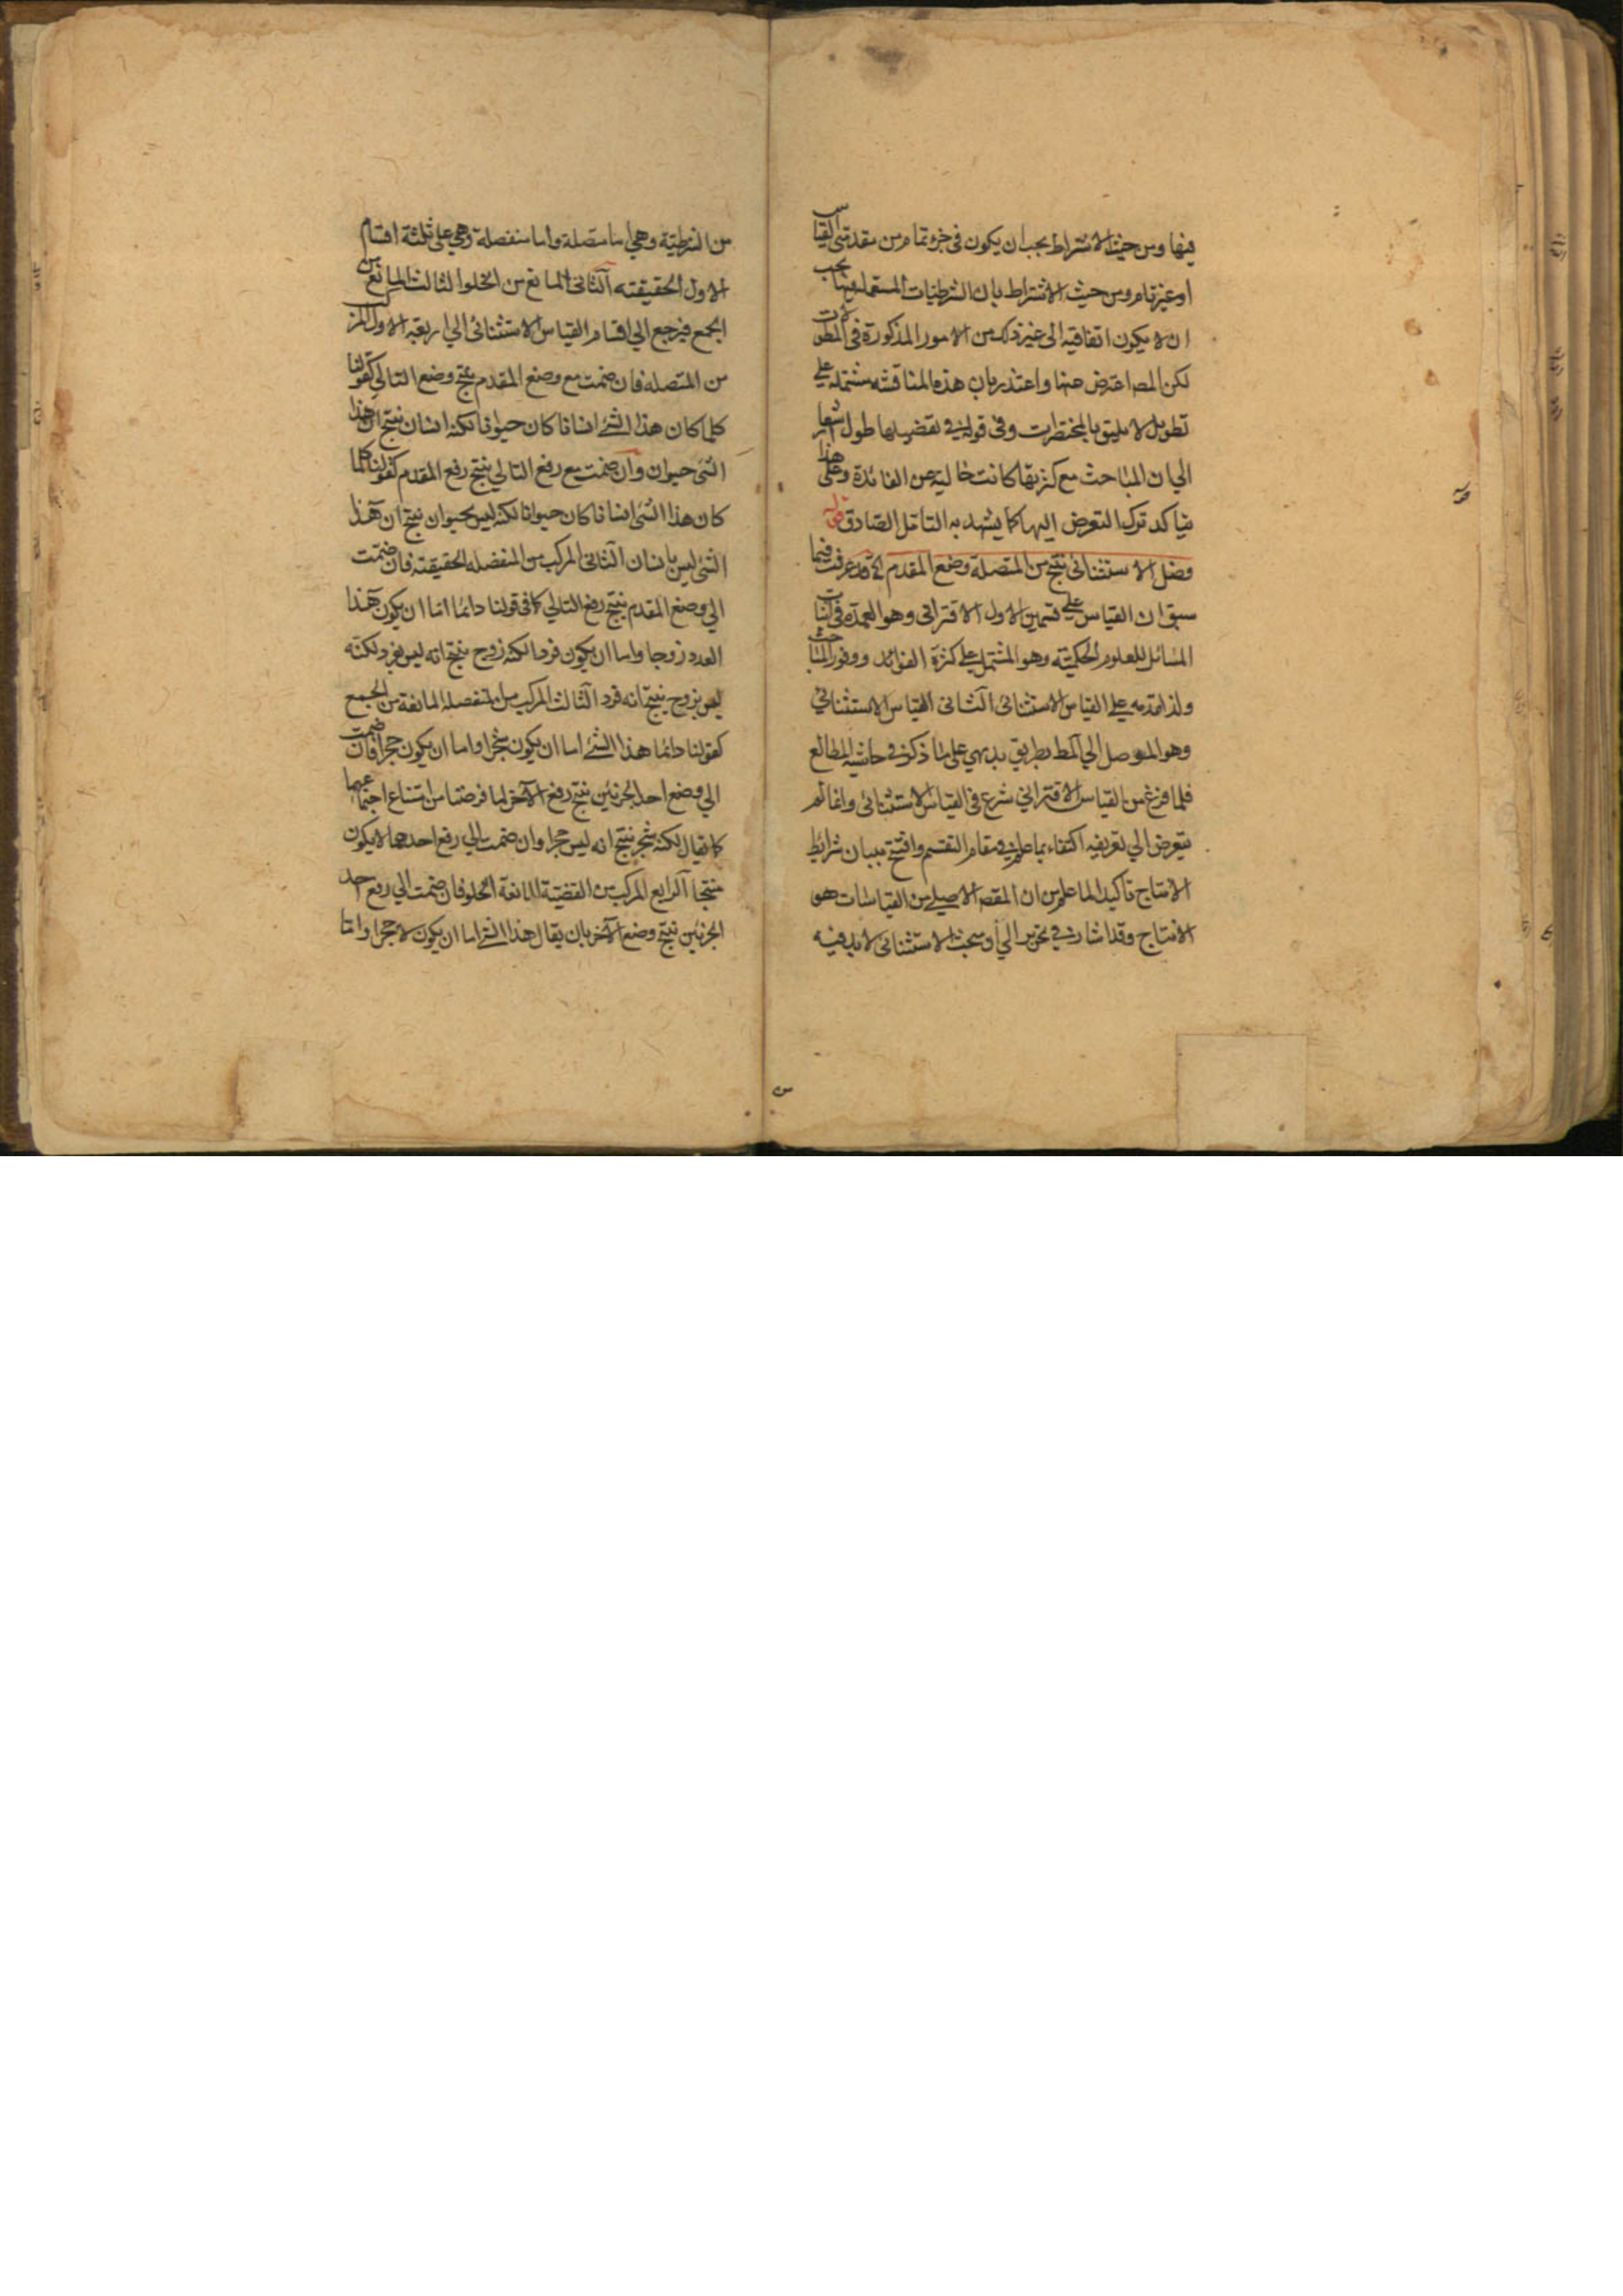 فيها ومن حيث الاشتراط يجب ان يكون فى جزء تمام من مقدمتى القياس
او غير تام ومن حيث الاشتراط بان الشرطيات المستعملة فيها يجب
ان لا يكون اتفاقيه الى غير ذلك من الامور المذكورة فى المطولات
لكن المصـ اعترض عنها واعتذر بان هذه المناقشه مشتمله على
تطويل لا يليق بالمختصرات وفى قوله فى تفصيلها طول اشعار
الى ان المباحث مع كثرتها كانت خالية عن الفائدة وعلى هذا
فيا كد ترك التعرض اليها كما يشهد به التامل الصادق قوله
فصل الاستثنائى ينتج من المتصلة وضع المقدم الخ قد عرفت فيما
سبق ان القياس على قسمين الاول الاقترانى وهو العمدة فى اثبات
المسائل للعلوم الحكميّة وهو المشتمل على كثرة الفوائد ووفور المباحث
ولذا قدمه على القياس الاستثنائى الثانى القياس الاستثنائي
وهو الموصل الي المط بطريق بديهي على ما ذكره فى حاشية المطالع
فلما فرغ من القياس الاقتراني شرع فى القياس الاستثنائى وانما لم
يتعرض الي تعريفه اكتفاء بما علم فى مقام التقسيم وافتتح ببيان شرائط
الانتاج تاكيدا لما علم من ان المقصـ الاصلي من القياسات هو
الانتاج وقد اشار فى تحرير الي او سبحث الاستثنائى لابد فيه
من الشرطيّة وهي اما متصلة واما منفصلة وهي على ثلثة اقسام
الاول الحقيقته الثانى المانع من الخلو الثالث المانع من
الجمع فيرجع الي اقسام القياس الاستثنائى الي اربعة الاول المركب
من المتصله فان ضمت مع وضع المقدم ينتج وضع التالي كقولنا
كلما كان هذا الشئ انسانا كان حيوانا لكنه انسان ينتج ان هذا
الشئ حيوان وان ضمت مع رفع التالي ينتج رفع المقدم كقولنا كلما
كان هذا الشئ انسانا كان حيوانا لكنه ليس بحيوان ينتج ان هذا
الشئ ليس بانسان الثانى المركب من المنفصله الحقيقته فان ضمّت
الي وضع المقدم ينتج رفع التالي كما فى قولنا دائما اما ان يكون هذا
العدد زوجا واما ان يكون فردا لكنه زوج ينتج انه ليس بفرد لكنّه
ليس بزوج ينتج انه فرد الثالث المركب من المنفصله المانعة من الجمع
كقولنا دائما هذا الشئ اما ان يكون شجرا واما ان يكون حجرا فان ضمت
الي وضع احد الجزئين ينتج رفع الآخر لما فرضنا من امتناع اجتماعهما
كما يقال لكنه شجر ينتج انه ليس حجرا وان ضمت الي رفع احدهما لا يكون
منتجا الرابع المركب من القضيّة المانعة الخلو فان ضمت الي رفع احد
الجزئين ينتج وضع الآخر بان يقال هذا الشئ اما ان يكون لا حجرا واما